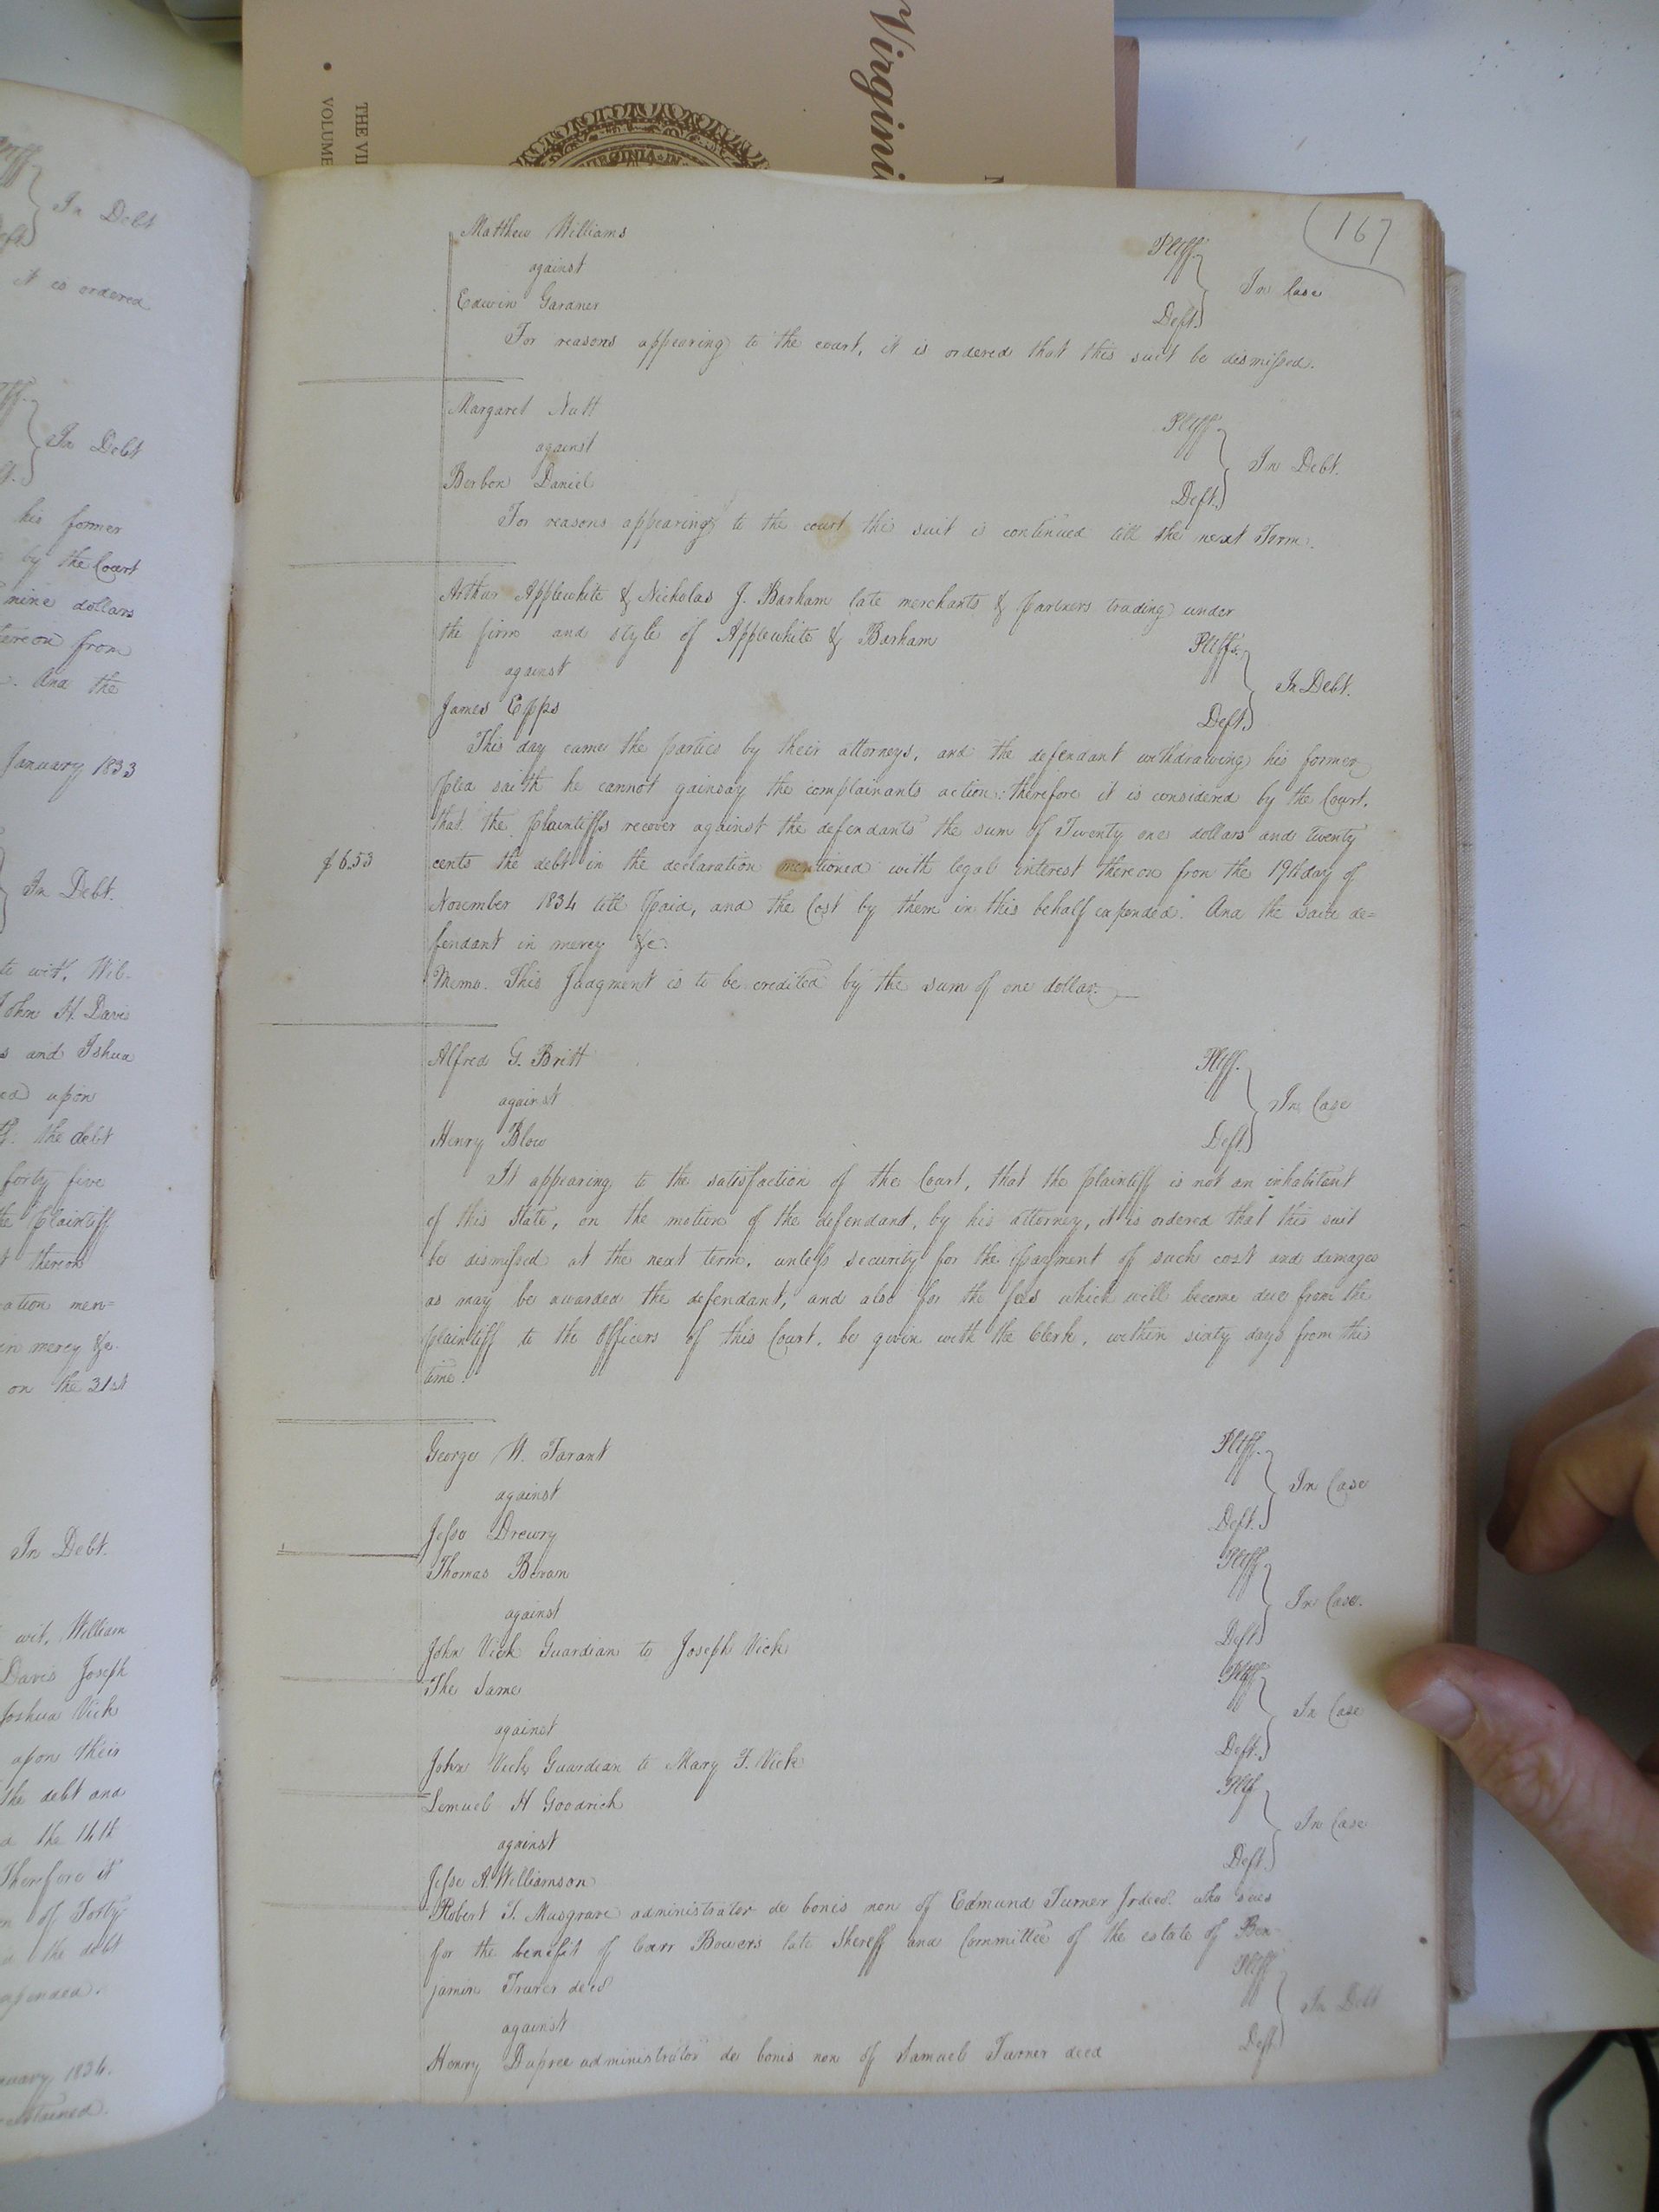 Virgini
THE VI
VOLUME
VIRGINIA
167
Matthew Williams Pltff.
against In Case
Edwin Gardner Deft.
For reasons appearing to the court, it is ordered that this suit be dismissed.
Margaret Nutt Pltff.
against In Debt.
Berbon Daniel Deft.
For reasons appearing to the court this suit is continued till the next Term.
Arthur Applewhite & Nicholas J. Barham late merchants & partners trading under
the firm and style of Applewhite & Barham Pltffs.
against In Debt.
James Epps Deft.
This day came the parties by their attorneys, and the defendant withdrawing his former
plea saith he cannot gainsay the complainants action: therefore it is considered by the Court,
that the plaintiffs recover against the defendants the sum of Twenty one dollars and twenty
$6.53 cents the debt in the declaration mentioned with legal interest thereon from the 19th day of
November 1834 till paid, and the Cost by them in this behalf expended. And the said de=
fendant in mercy &c.
Memo. This Judgment is to be credited by the sum of one dollar.
Alfred G. Britt Pltff.
against In Case
Henry Blow Deft.
It appearing to the satisfaction of the Court, that the plaintiff is not an inhabitant
of this State, on the motion of the defendant, by his attorney, it is ordered that this suit
be dismissed at the next term, unless security for the payment of such cost and damages
as may be awarded the defendant, and also for the fees which will become due from the
plaintiff to the Officers of this Court, be given with the Clerk, within sixty days from this
time.
George W. Tarant Pltff.
against In Case
Jesse Drewry Deft.
Thomas Bevan Pltff
against In Case.
John Vick Guardian to Joseph Vick Deft
The Same Pltff
against In Case
John Vick Guardian to Mary F. Vick Deft.
Lemuel H Goodrich Pltf
against In Case
Jesse A. Williamson Deft.
Robert T. Musgrave administrator de bonis non of Edmund Turner Jr decd. who sues
for the benefit of Carr Bowers late Sheriff and Committee of the estate of Ben-
jamin Turner decd Pltff
against In Debt
Henry Dupree administrator de bonis non of Samuel Turner decd Deft
In Debt
it is ordered
In Debt
his former
by the Court
nine dollars
thereon from
And the
January 1833
In Debt.
to wit, Wil-
John H. Davis
and Joshua
upon
the debt
forty five
plaintiff
thereon
ation men=
in mercy &c.
on the 31st
In Debt.
wit, William
Davis Joseph
Joshua Vick
upon their
the debt and
the 14th
Therefore it
of Forty
the debt
expended.
1834.